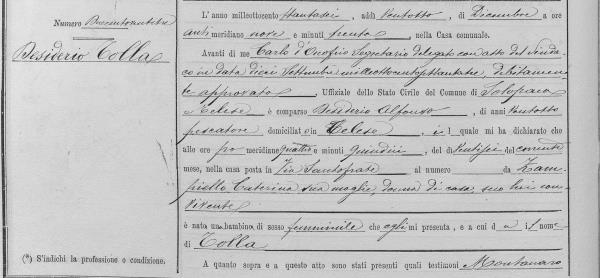 Numero Duecentotrentatre
Desiderio Tolla
(*) S'indichi la professione o condizione.
L'anno milleottocento ottantasei, addì ventotto di Dicembre a ore
anti meridiane nove e minuti trenta, nella Casa comunale.
Avanti di me Carlo d'Onofrio Segretario delegato con atto del Sinda-
co in data dieci Settembre milleottocento, debitamen-
te approvato, Uffiziale dello Stato Civile del Comune di Solopaca
e Telese è comparso Desiderio Alfonso, di anni ventotto
pescatore domiciliato in Telese, il quale mi ha dichiarato che
alle ore po meridiane quattro e minuti quindici, del dì ventisei del corrente
mese, nella casa posta in Via Santofrate al numero da Zam-
piello Caterina sua moglie, donna di casa, seco lui con-
vivente
è nato un bambino di sesso femminile che egli mi presenta, e a cui dà il nome
di Tolla
A quanto sopra e a questo atto sono stati presenti quali testimoni Montanaro